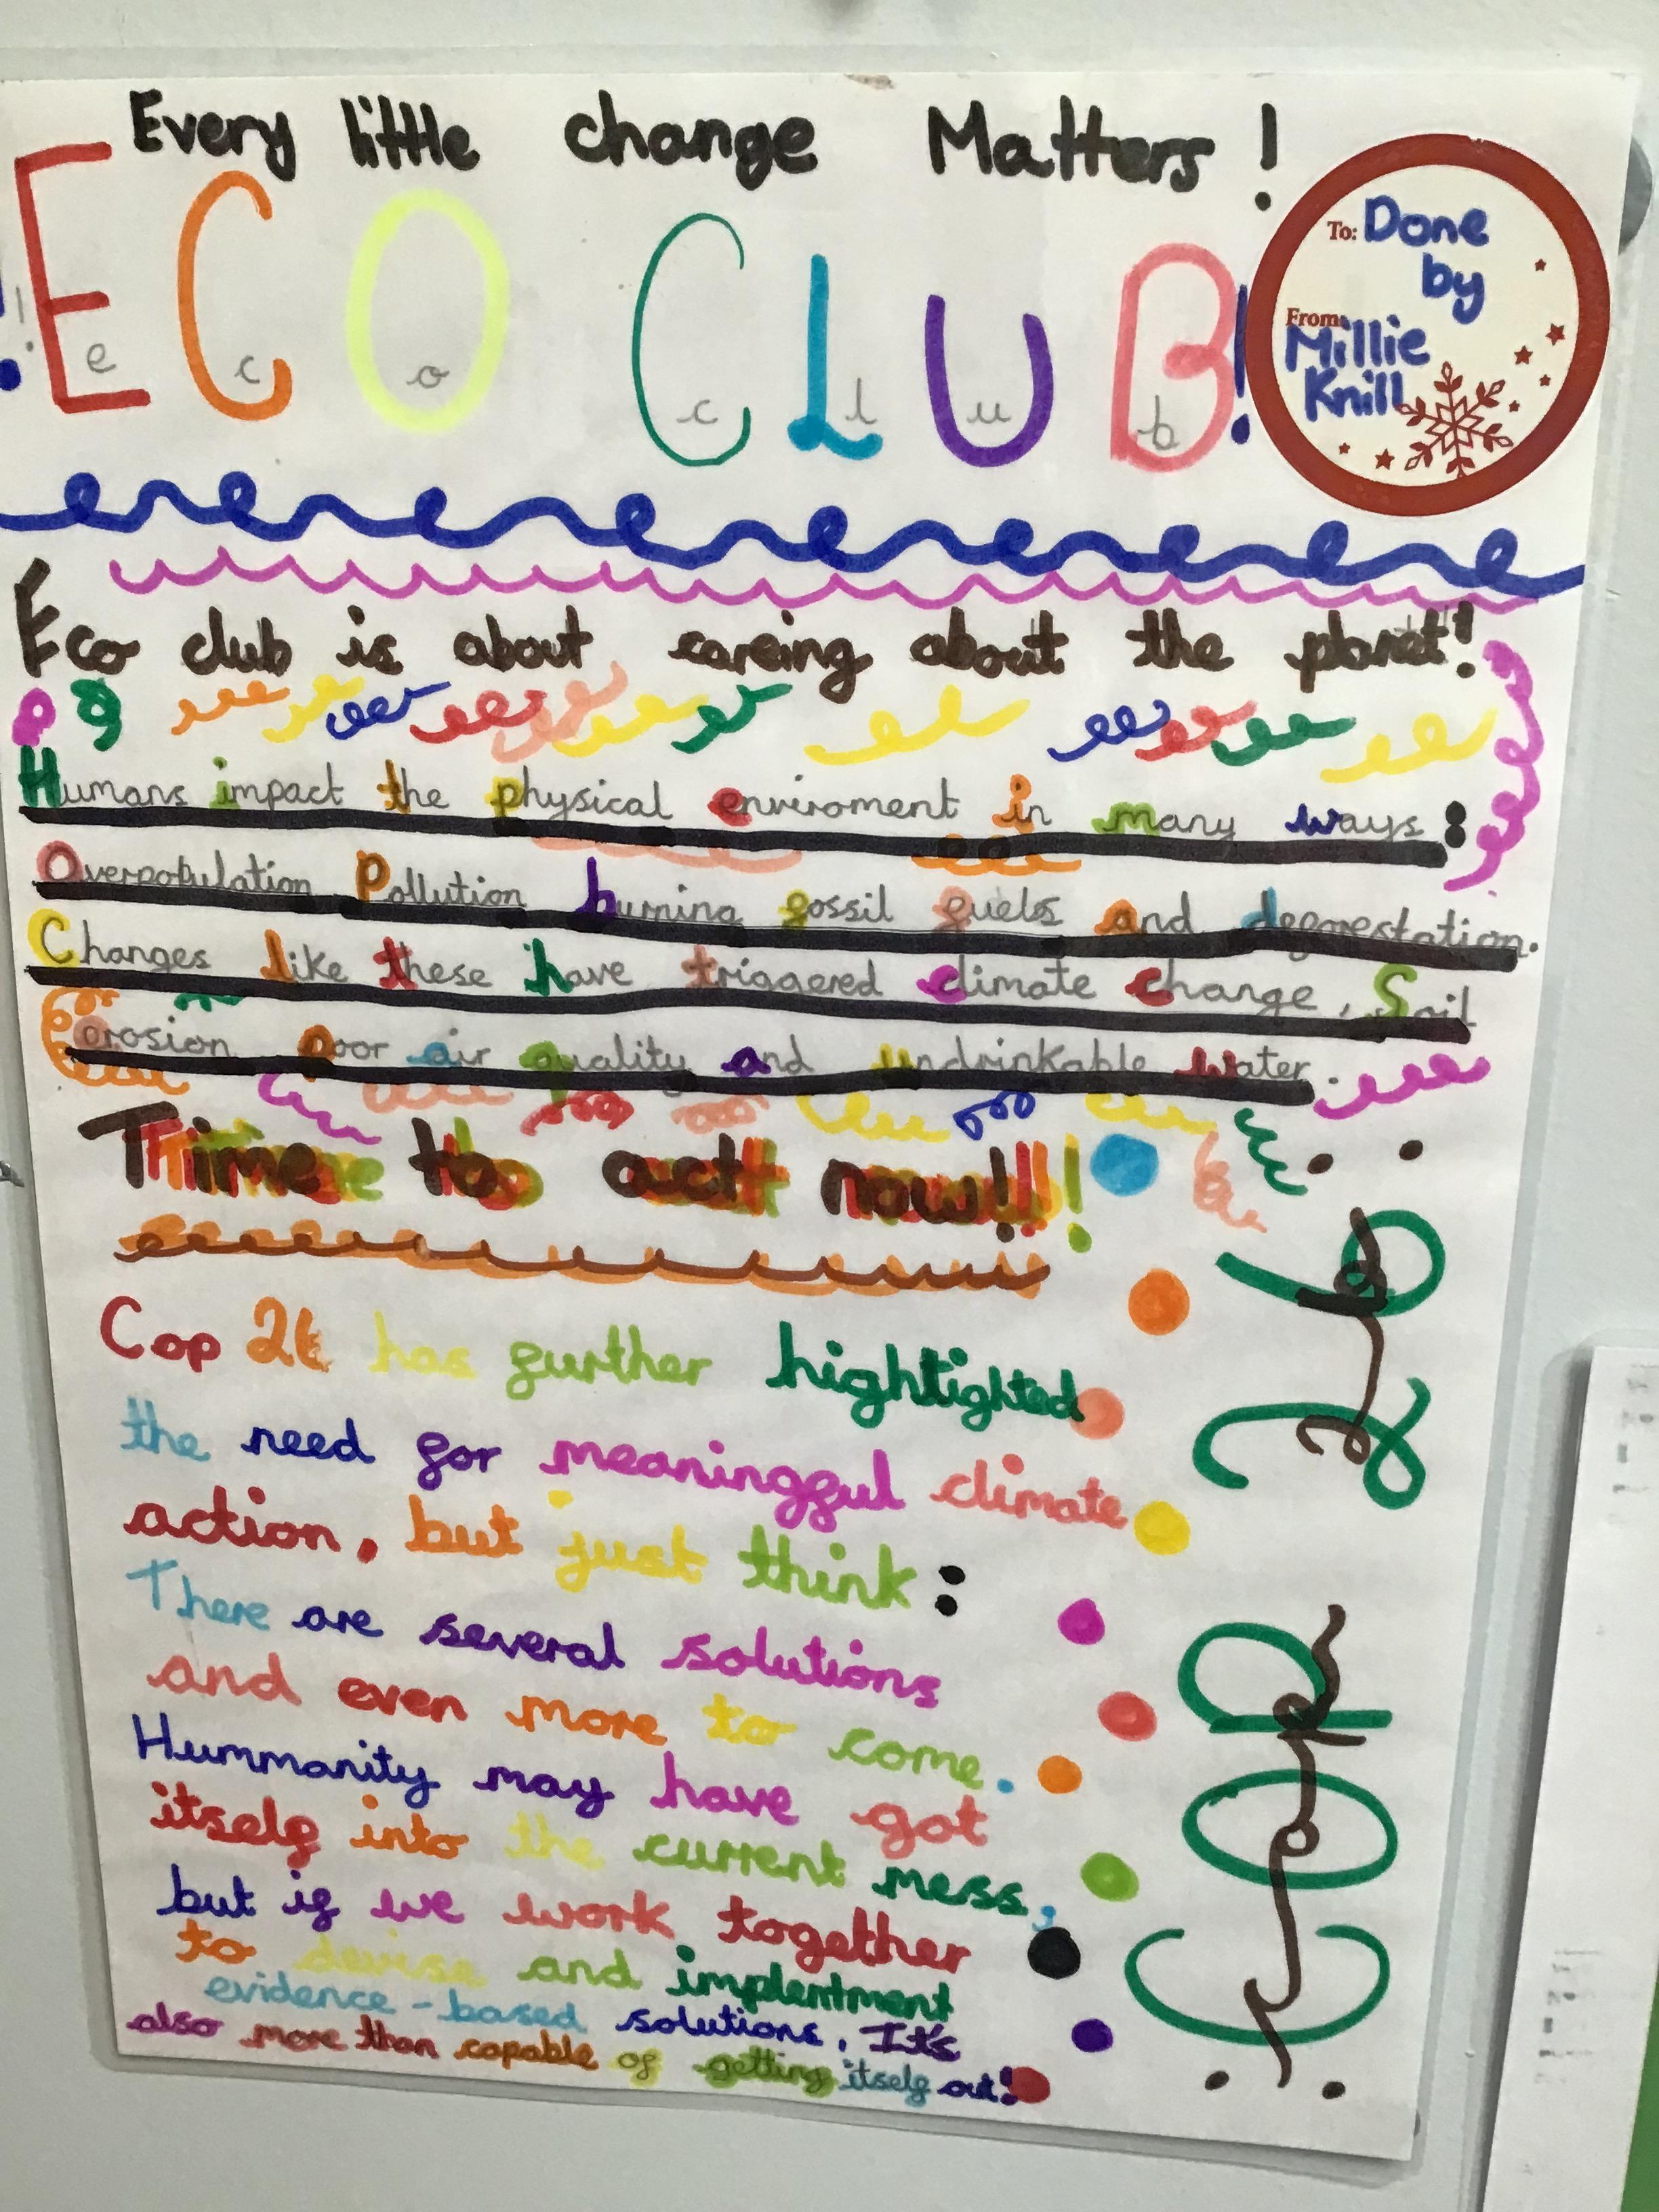 Every little change Matters !
! ECO CLUB !
e c o c l u b
To: Done
by
From: Millie
Knill
Eco club is about careing about the planet!
Humans impact the physical enviroment in many ways :
Overpopulation Pollution burning fossil fuels and deforestation.
Changes like these have triggered climate change, Soil
erosion poor air quality and undrinkable water.
Time to act now!!!!
Cop 26 has further hightighted
the need for meaningful climate
action, but just think :
There are several solutions
and even more to come.
Hummanity may have got
itself into the current mess,
but if we work together
to devise and implentment
evidence-based solutions. It's
also more than capable of getting itself out!
COP 26